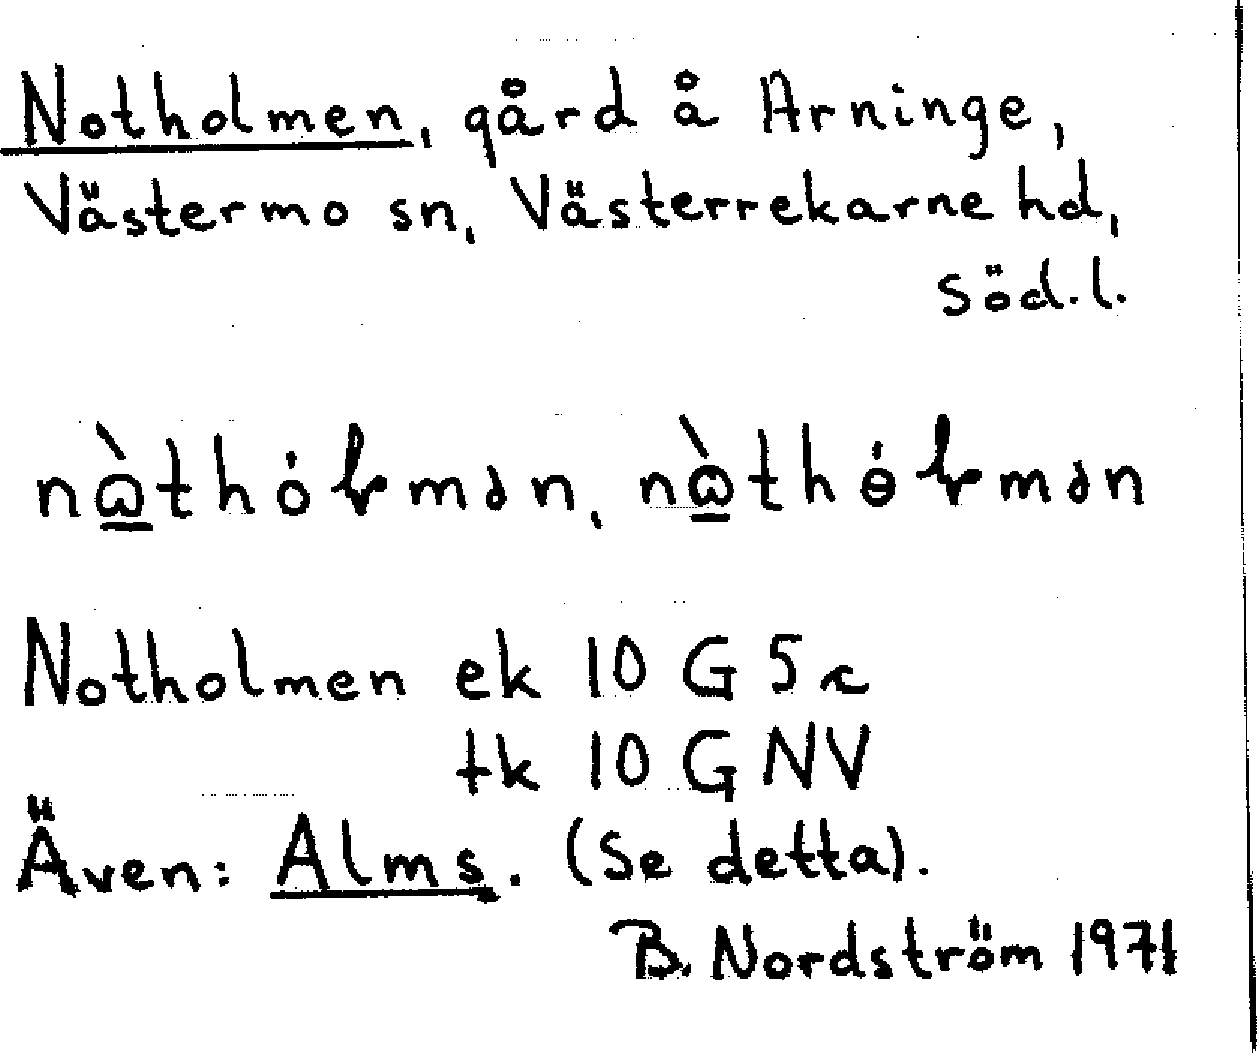 Notholmen, gård å Arninge,
Västermo sn, Västerrekarne hd,
Söd.l.
Notholmen ek 10 G 5 c
tk 10 G NV
Även: Alms. (Se detta).
B. Nordström 1971